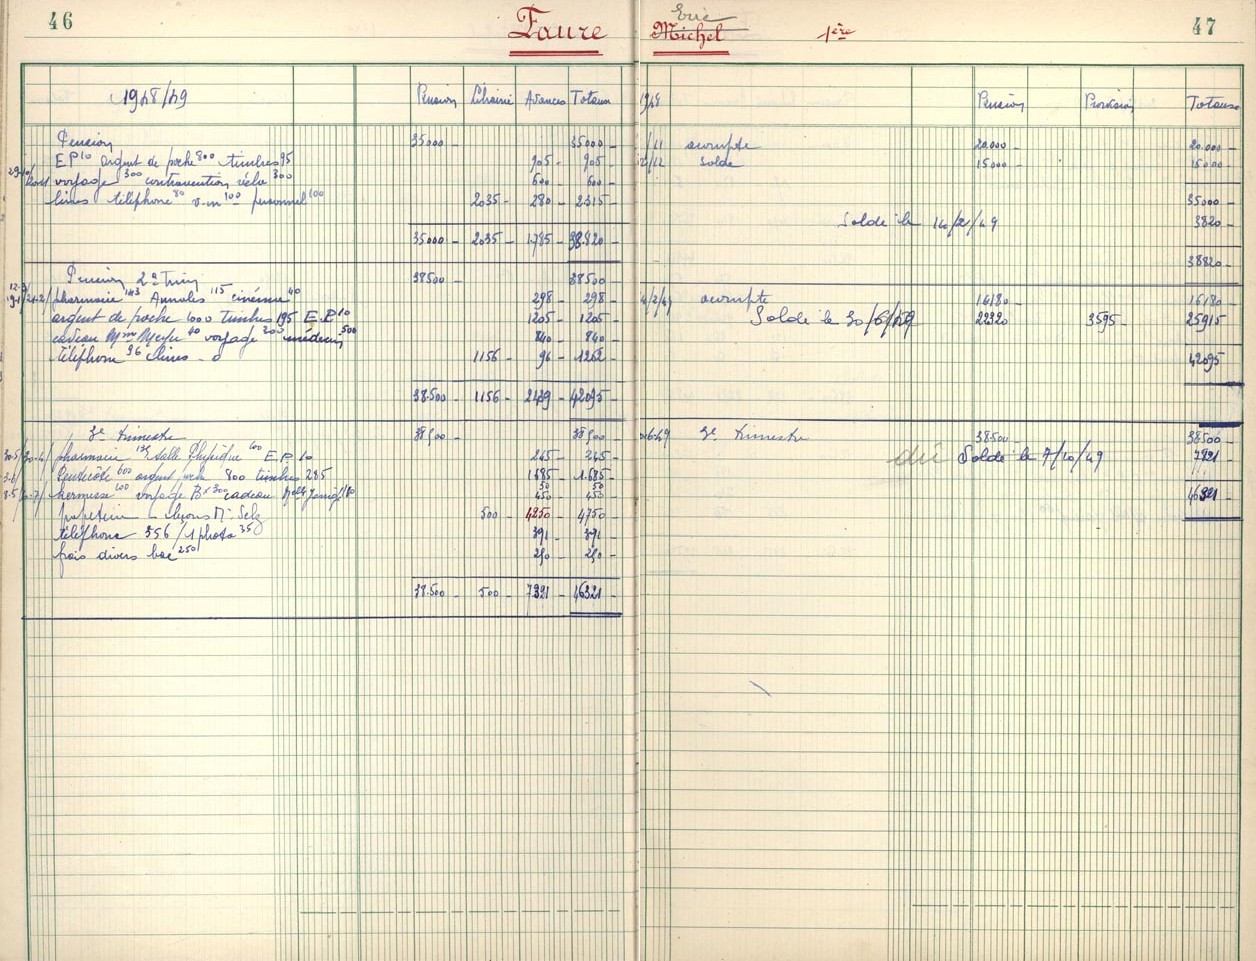 46
Faure
1948/49 Pension Librairie Avances Totaux
Pension 35000 - 35000 -
EP 10 argent de poche 800 timbres 95 905 - 905 -
voyage 300 contravention vélo 300 600 - 600 -
livres téléphone 80 100 personnel 100 2035 - 280 - 2315 -
35000 - 2035 - 1785 - 38.820 -
Pension 2e Trim 38500 - 38500 -
pharmacie 143 Annales 115 cinéma 40 298 - 298 -
argent de poche 1000 timbres 195 E.P. 10 1205 - 1205 -
cadeau voyage 300 médecin 500 840 - 840 -
téléphone 96 livres 1156 - 96 - 1252 -
38.500 - 1156 - 2439 - 42095 -
3e trimestre 38500 - 38500 -
pharmacie Salle Physique 100 E.P. 10 245 - 245 -
Pentecôte 600 argent poche 800 timbres 285 1685 - 1.685 -
50 50
kermesse 100 voyage 300 cadeau 450 - 450 -
papeterie leçons Mr Selz 500 - 4250 - 4750 -
téléphone 356 / 1 photo 35 391 - 391 -
frais divers bac 250 250 - 250 -
38.500 - 500 - 7321 - 46321 -
Eric
Michel 1ère
47
1948 Pension Provision Totaux
/11 acompte 20.000 - 20.000 -
/12 solde 15000 - 15000 -
35000 -
Solde le 14/2/49 3820 -
38820 -
4/2/49 acompte 16180 - 16180 -
Solde le 30/6/49 22320 3595 - 25915
42095
3e trimestre 38500 - 38500 -
dû Solde le 7/10/49 7821 -
46321